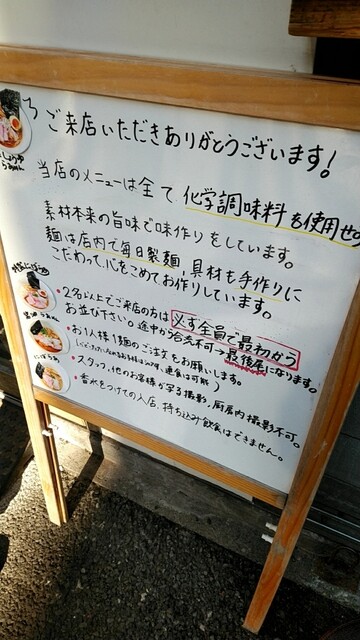 ご来店いただきありがとうございます!
しょうゆ
らぁめん
当店のメニューは全て、化学調味料を使用せ
素材本来の旨味で味作りをしています。
麺は店内で毎日製麺!具材も手作りに
こだわって、心をこめてお作りしています。
・2名以上でご来店の方は必ず全員で最初から
お並び下さい。途中から合流不可→最後尾になります。
・お1人様1麺のご注文をお願いします。
・スタッフ、他のお客様が写る撮影、厨房内撮影不可。
・香水をつけての入店、持ち込み飲食はできません。